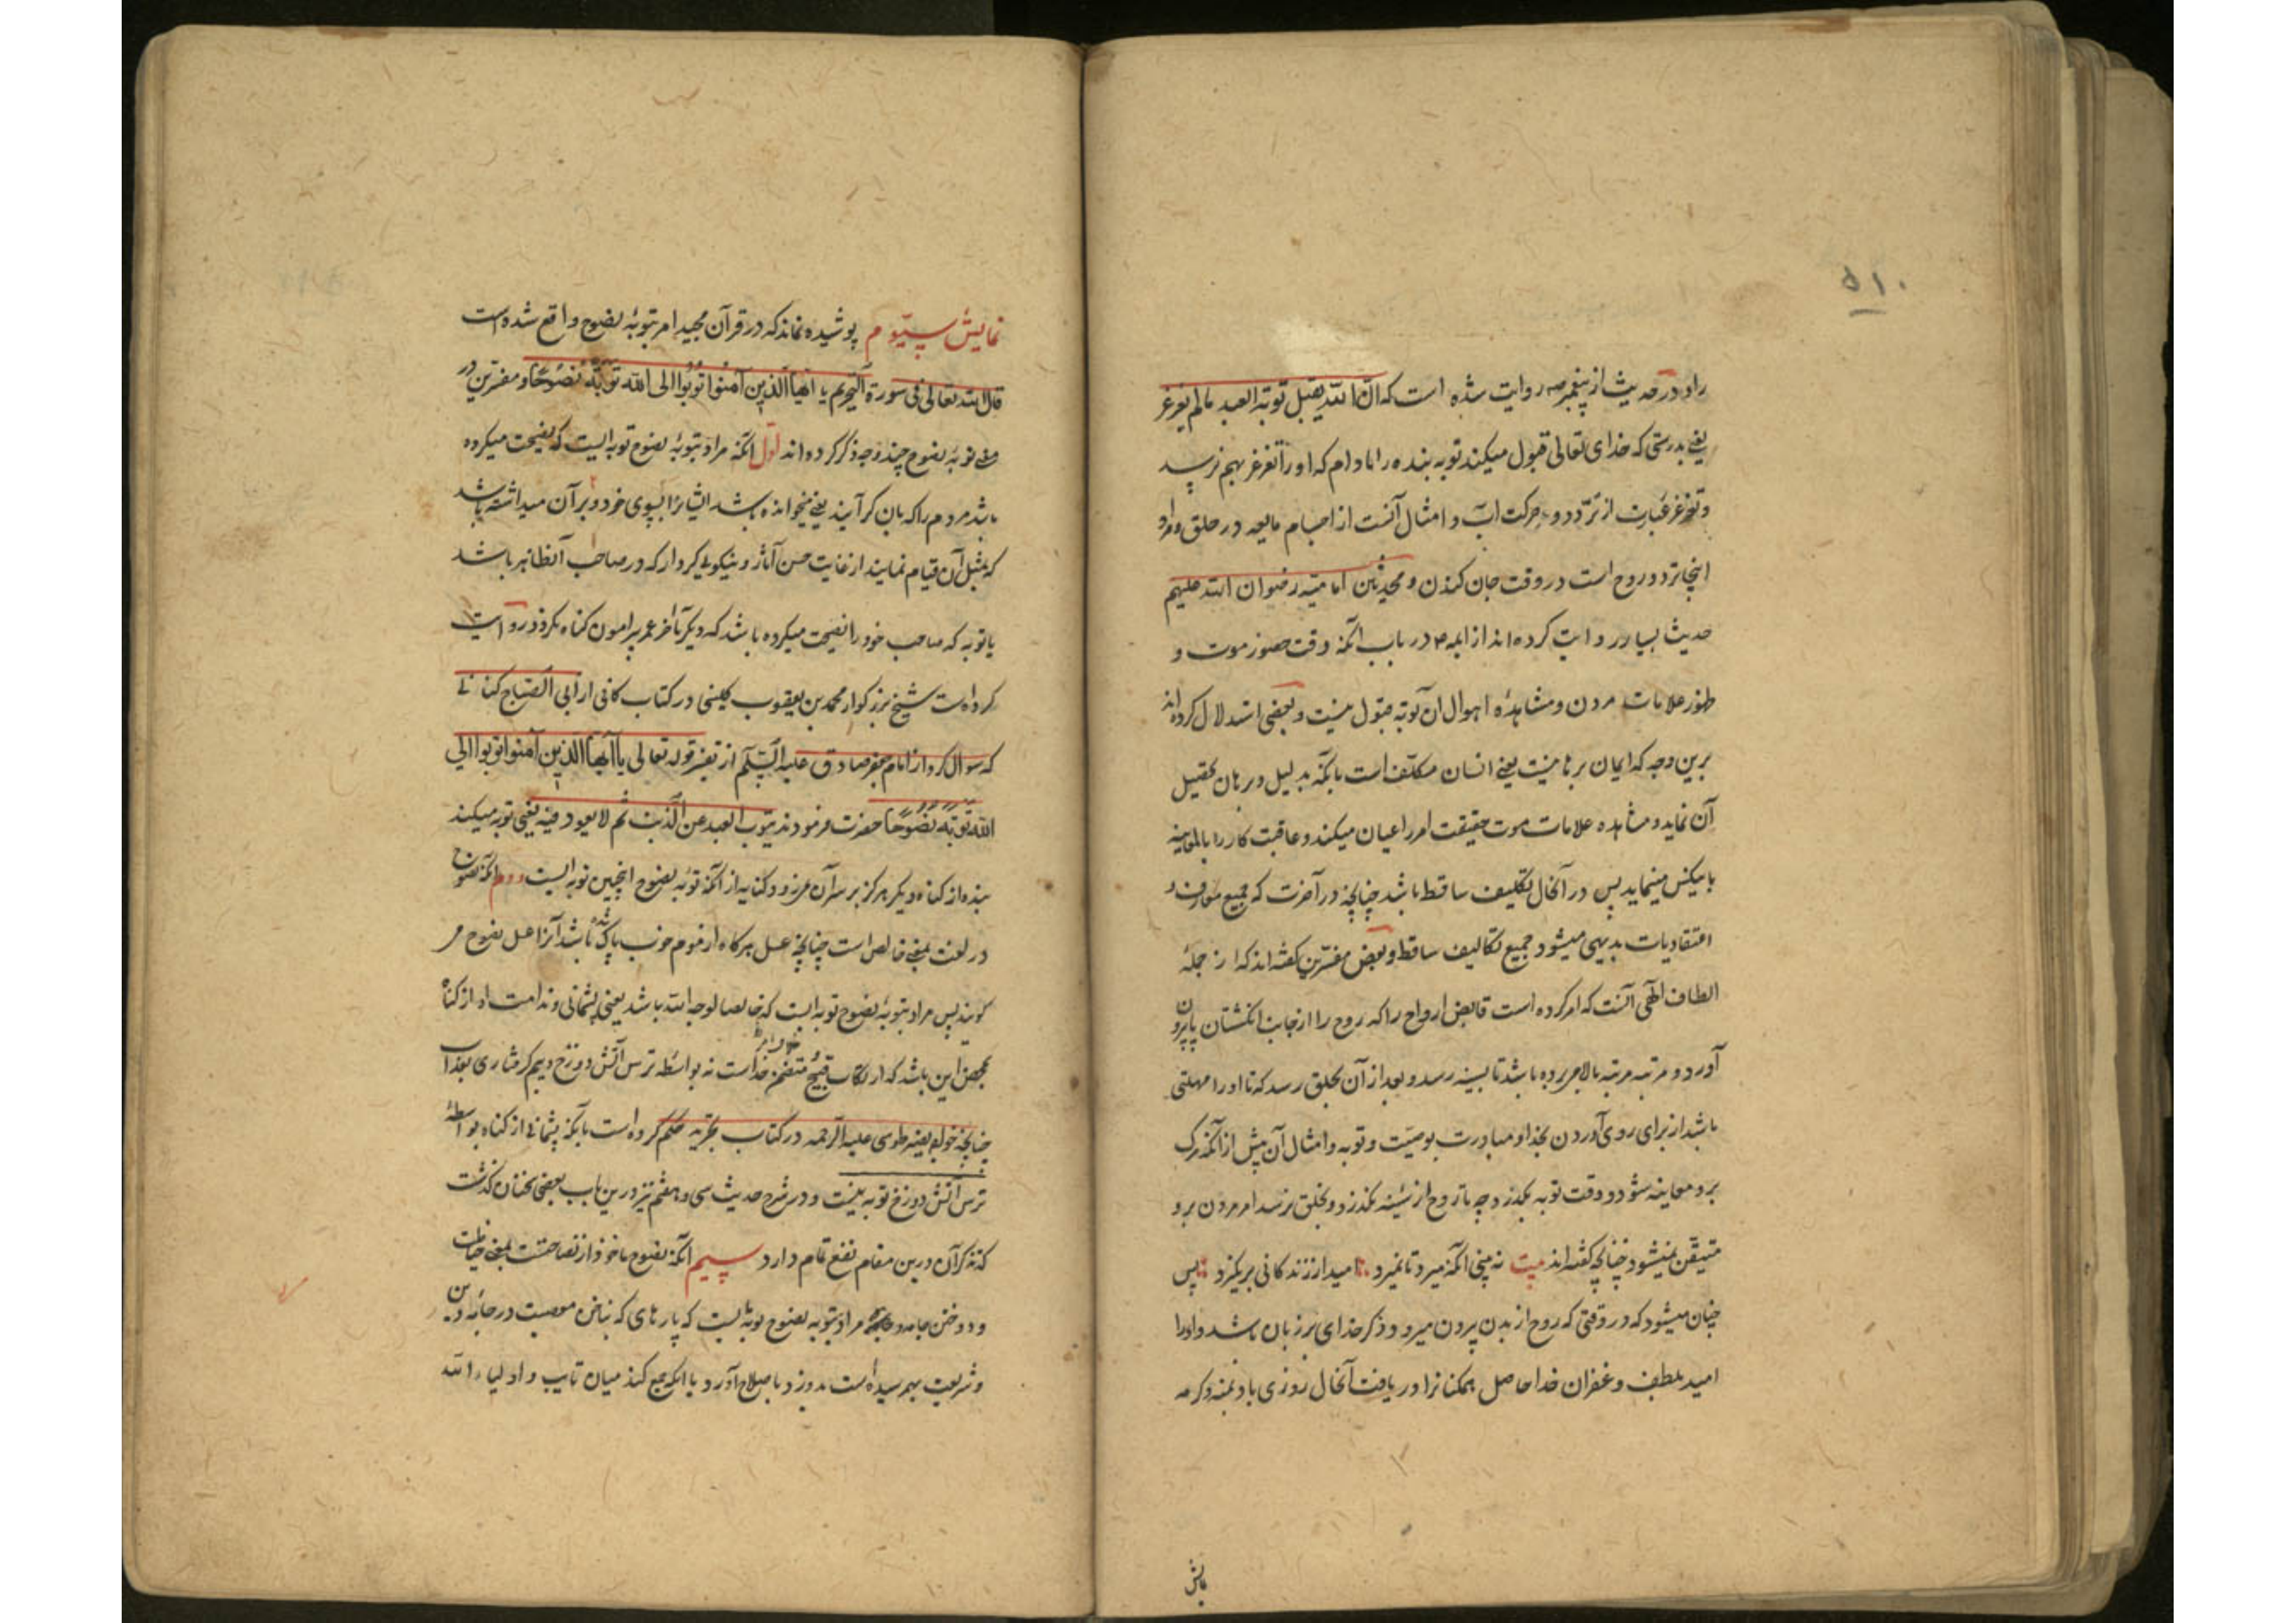 ۵۱۰
راد در حدیث از پیغمبر ص روایت شده است که انّ الله یقبل توبة العبد مالم یغرغر
یعنی بدرستی که خدای تعالی قبول میکند توبه بنده را مادام که او را تغرغر بهم نرسد
و تغرغر عبارت از تردد و حرکت آب و امثال آنست از اجسام مایعه در حلق و مراد
اینجا تردد روح است در وقت جان کندن و محدثین امامیه رضوان الله علیهم
حدیث بسیار روایت کرده‌اند از ایمه ع در باب آنکه وقت حضور موت و
ظهور علامات مردن و مشاهدهٔ اهوال آن توبه مقبول نیست و بعضی استدلال کرده‌اند
برین وجه که ایمان برهانیست یعنی انسان مکلف است بآنکه بدلیل و برهان تحصیل
آن نماید و مشاهده علامات موت حقیقت امر را عیان میکند و عاقبت کار را بالمعاینه
باینکس مینماید پس در آنحال تکلیف ساقط باشد چنانچه در آخرت که جمیع معارف و
اعتقادیات بدیهی میشود جمیع تکالیف ساقط و بعض مفسرین گفته‌اند که از جملهٔ
الطاف الهی آنست که امر کرده است قابض ارواح را که روح را از جانب انگشتان پا بیرون
آورد و مرتبه مرتبه بالا میبرده باشد تا بسینه رسد و بعد از آن بحلق رسد که تا او را مهلتی
باشد از برای روی آوردن بخدا و مبادرت بوصیت و توبه و امثال آن پیش از آنکه مرگ
برو معاینه شود و وقت توبه بگذرد چه تا روح از سینه نگذرد و بحلق نرسد امر مردن برو
متیقن نمیشود چنانچه گفته‌اند بیت نه بینی آنکه میرد تا نمیرد امید از زندگانی برنگیرد پس
چنان میشود که در وقتی که روح از بدن بیرون میرود ذکر خدای بر زبان باشد و او را
امید بلطف و غفران خدا حاصل همکنانرا دریافت آنحال روزی باد بمنه و کرمه
نمایش
نمایش سیّوم پوشیده نماند که در قرآن مجید امر بتوبهٔ نصوح واقع شده است
قال الله تعالی فی سورة التحریم یا ایها الذین آمنوا توبوا الی الله توبة نصوحًا و مفسرین در
معنی توبهٔ نصوح چند وجه ذکر کرده‌اند اوّل آنکه مراد بتوبهٔ نصوح توبه‌ایست که نصیحت میکرده
باشد مردم را که بآن گرایند یعنی میخوانده باشد ایشانرا بسوی خود و بر آن میداشته باشد
که بمثل آن قیام نمایند از غایت حسن آثار و نیکوئی کردار که در صاحب آن ظاهر باشد
یا توبه که صاحب خود را نصیحت میکرده باشد که دیگر تا آخر عمر پیرامون گناه نگردد روایت
کرده است شیخ بزرگوار محمد بن یعقوب کلینی در کتاب کافی از ابی الصباح کنانی
که سوال کرد از امام جعفر صادق علیه السلام از تفسیر قوله تعالی یا أیها الذین آمنوا توبوا الی
الله توبة نصوحًا حضرت فرمودند یتوب العبد عن الذنب ثم لا یعود فیه یعنی توبه میکند
بنده از گناه و دیگر هرگز بر سر آن نمیرود کنایه از آنکه توبهٔ نصوح اینچنین توبه‌ایست دوم آنکه نصوح
در لغت بمعنی خالص است چنانچه عسل هرگاه از موم خوب پاک شده باشد آنرا عسل نصوح می
گویند پس مراد بتوبهٔ نصوح توبه‌ایست که خالصا لوجه الله باشد یعنی پشمانی و ندامت او از گناه
محض این باشد که ارتکاب قبیح متضمن خلاف امر خداست نه بواسطه ترس آتش دوزخ و بیم گرفتاری بعذاب
چنانچه خواجه نصیر طوسی علیه الرحمه در کتاب تجرید حکم کرده است بآنکه پشمانی از گناه بواسطهٔ
ترس آتش دوزخ توبه نیست و در شرح حدیث سی و هفتم نیز درین باب بعضی سخنان گذشت
که تذکر آن درین مقام نفع تمام دارد سیم آنکه نصوح ماخوذ از نصاحتست بمعنی خیاطت
و دوختن جامه و مراد بتوبه نصوح توبه‌ایست که پارهای که بناخن معصیت در جامهٔ دین
و شریعت بهم رسیده است بدوزد و باصلاح آورد یا آنکه جمع کند میان تایب و اولیاء الله